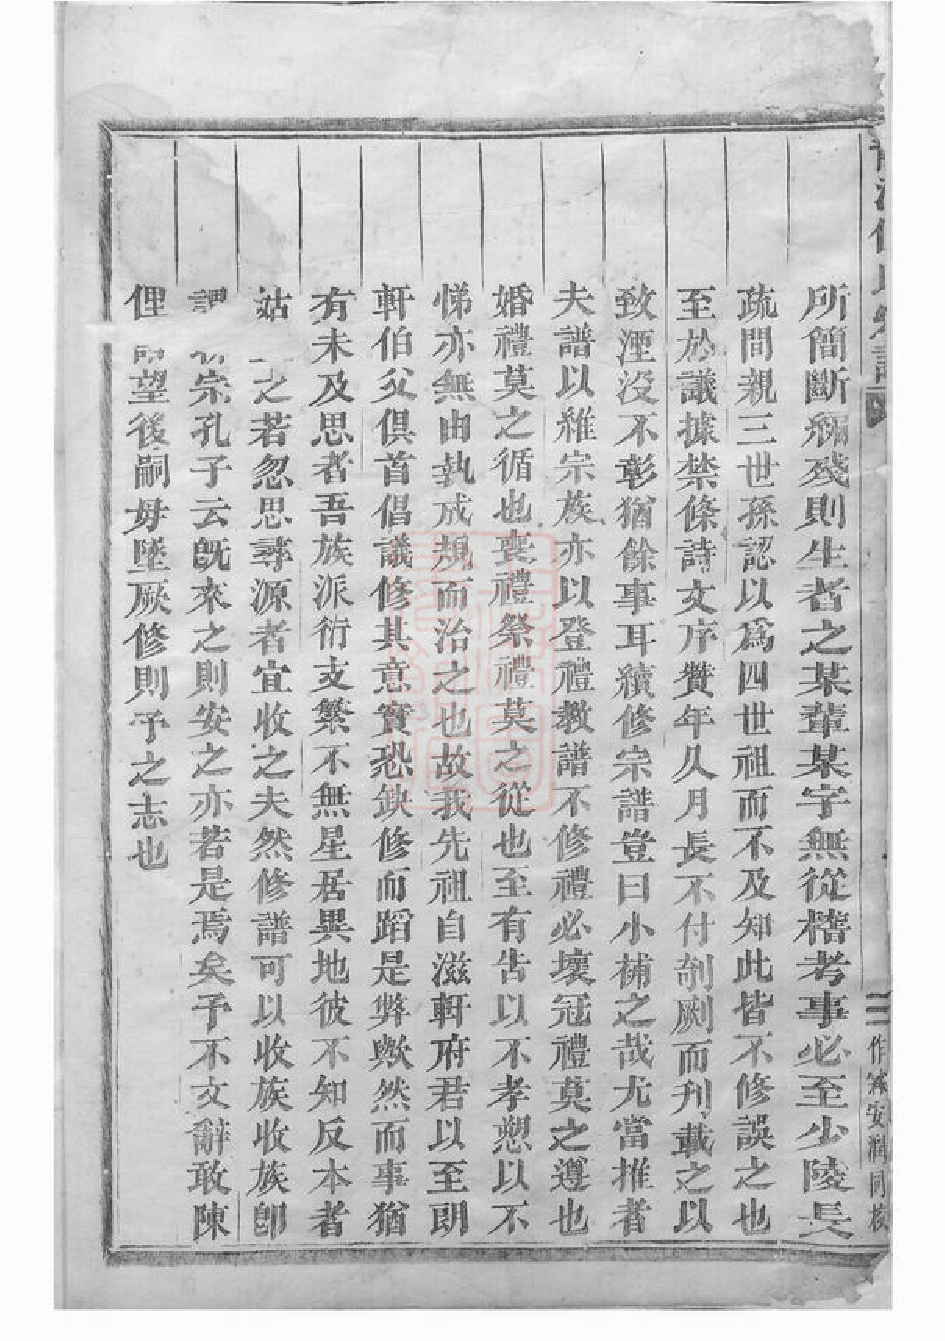 氏宗譜
二
作霖安瀾同校
所簡斷編殘則生者之某輩某字無從稽考事必至少陵長
疏間親三世孫認以爲四世祖而不及知此皆不修誤之也
至於議據禁條詩文序贊年久月長不付剞劂而刊載之以
致湮沒不彰猶餘事耳續修宗譜豈曰小補之哉尤當推者
夫譜以維宗族亦以登禮教譜不修禮必壞冠禮莫之遵也
婚禮莫之循也喪禮祭禮莫之從也至有告以不孝愬以不
悌亦無由執成規而治之也故我先祖自滋軒府君以至朗
軒伯父俱首倡議修其意實恐缺修而蹈是弊歟然而事猶
有未及思者吾族派衍支繁不無星居異地彼不知反本者
姑之若忽思尋源者宜收之夫然修譜可以收族收族卽
謂宗孔子云旣來之則安之亦若是焉矣予不文辭敢陳
俚望後嗣毋墜厥修則予之志也